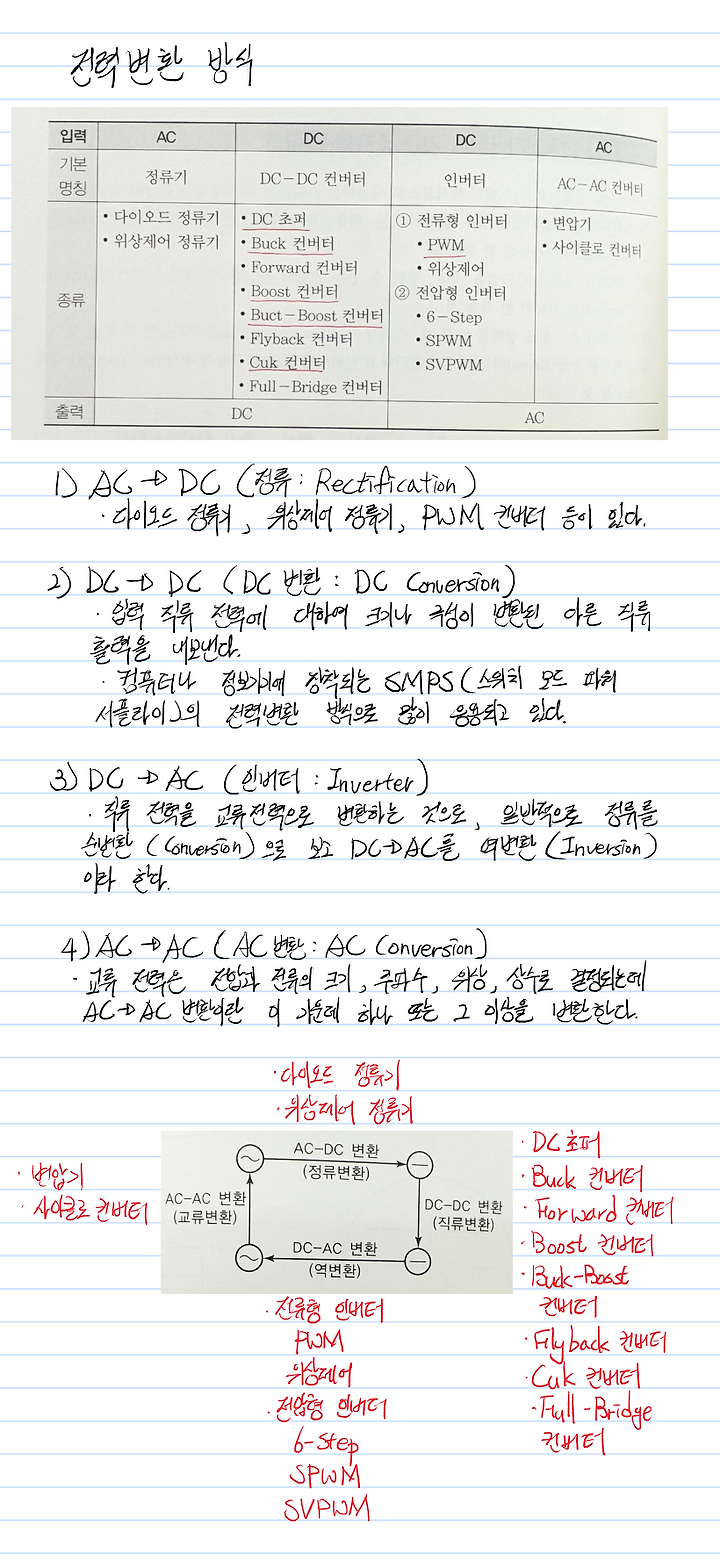 전력변환 방식
입력 AC DC DC AC
기본 명칭 정류기 DC-DC 컨버터 인버터 AC-AC 컨버터
종류
• 다이오드 정류기
• 위상제어 정류기
• DC 초퍼
• Buck 컨버터
• Forward 컨버터
• Boost 컨버터
• Buct-Boost 컨버터
• Flyback 컨버터
• Cuk 컨버터
• Full-Bridge 컨버터
① 전류형 인버터
• PWM
• 위상제어
② 전압형 인버터
• 6-Step
• SPWM
• SVPWM
• 변압기
• 사이클로 컨버터
출력 DC AC
1) AC → DC (정류 : Rectification)
· 다이오드 정류기, 위상제어 정류기, PWM 컨버터 등이 있다.
2) DC → DC (DC 변환 : DC Conversion)
· 입력 직류 전력에 대하여 크기나 극성이 변환된 다른 직류
출력을 내보낸다.
· 컴퓨터나 정보기기에 장착되는 SMPS (스위치 모드 파워
서플라이)의 전력변환 방식으로 많이 응용되고 있다.
3) DC → AC (인버터 : Inverter)
· 직류 전력을 교류전력으로 변환하는 것으로, 일반적으로 정류를
순변환 (Conversion)으로 보고 DC→AC를 역변환 (Inversion)
이라 한다.
4) AC → AC (AC 변환 : AC Conversion)
· 교류 전력은 전압과 전류의 크기, 주파수, 위상, 상수로 결정되는데
AC→AC 변환이란 이 가운데 하나 또는 그 이상을 변환한다.
· 다이오드 정류기
· 위상제어 정류기
· 변압기
· 사이클로 컨버터
AC-DC 변환
(정류변환)
AC-AC 변환
(교류변환)
DC-DC 변환
(직류변환)
DC-AC 변환
(역변환)
· DC 초퍼
· Buck 컨버터
· Forward 컨버터
· Boost 컨버터
· Buck-Boost
컨버터
· Flyback 컨버터
· Cuk 컨버터
· Full-Bridge
컨버터
· 전류형 인버터
PWM
위상제어
· 전압형 인버터
6-Step
SPWM
SVPWM